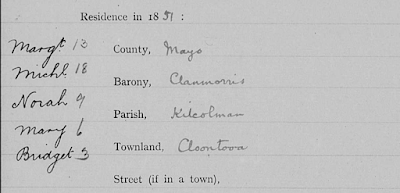 Residence in 1851 :
Margt 13
County, Mayo
Michl. 18
Barony, Clanmorris
Norah 9
Parish, Kilcolman
Mary 6
Townland, Cloontooa
Bridget 3
Street (if in a town),